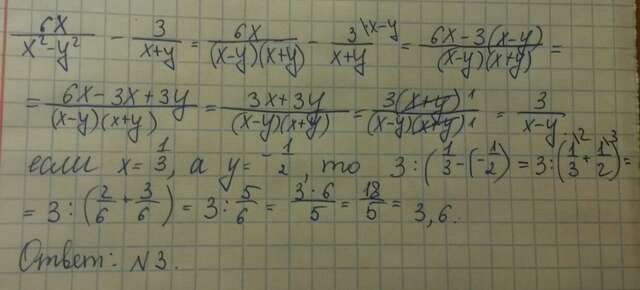 6x/(x²-y²) - 3/(x+y) = 6x/((x-y)(x+y)) - 3\x-y/(x+y) = (6x-3(x-y))/((x-y)(x+y)) =
= (6x-3x+3y)/((x-y)(x+y)) = (3x+3y)/((x-y)(x+y)) = 3(x+y)¹/((x-y)(x+y)¹) = 3/(x-y).
если x=1/3, а y=-1/2, то 3:(1/3-(-1/2)) = 3:(1\²/3+1\³/2) =
= 3:(2/6+3/6) = 3:5/6 = 3·6/5 = 18/5 = 3,6.
Ответ: N3.